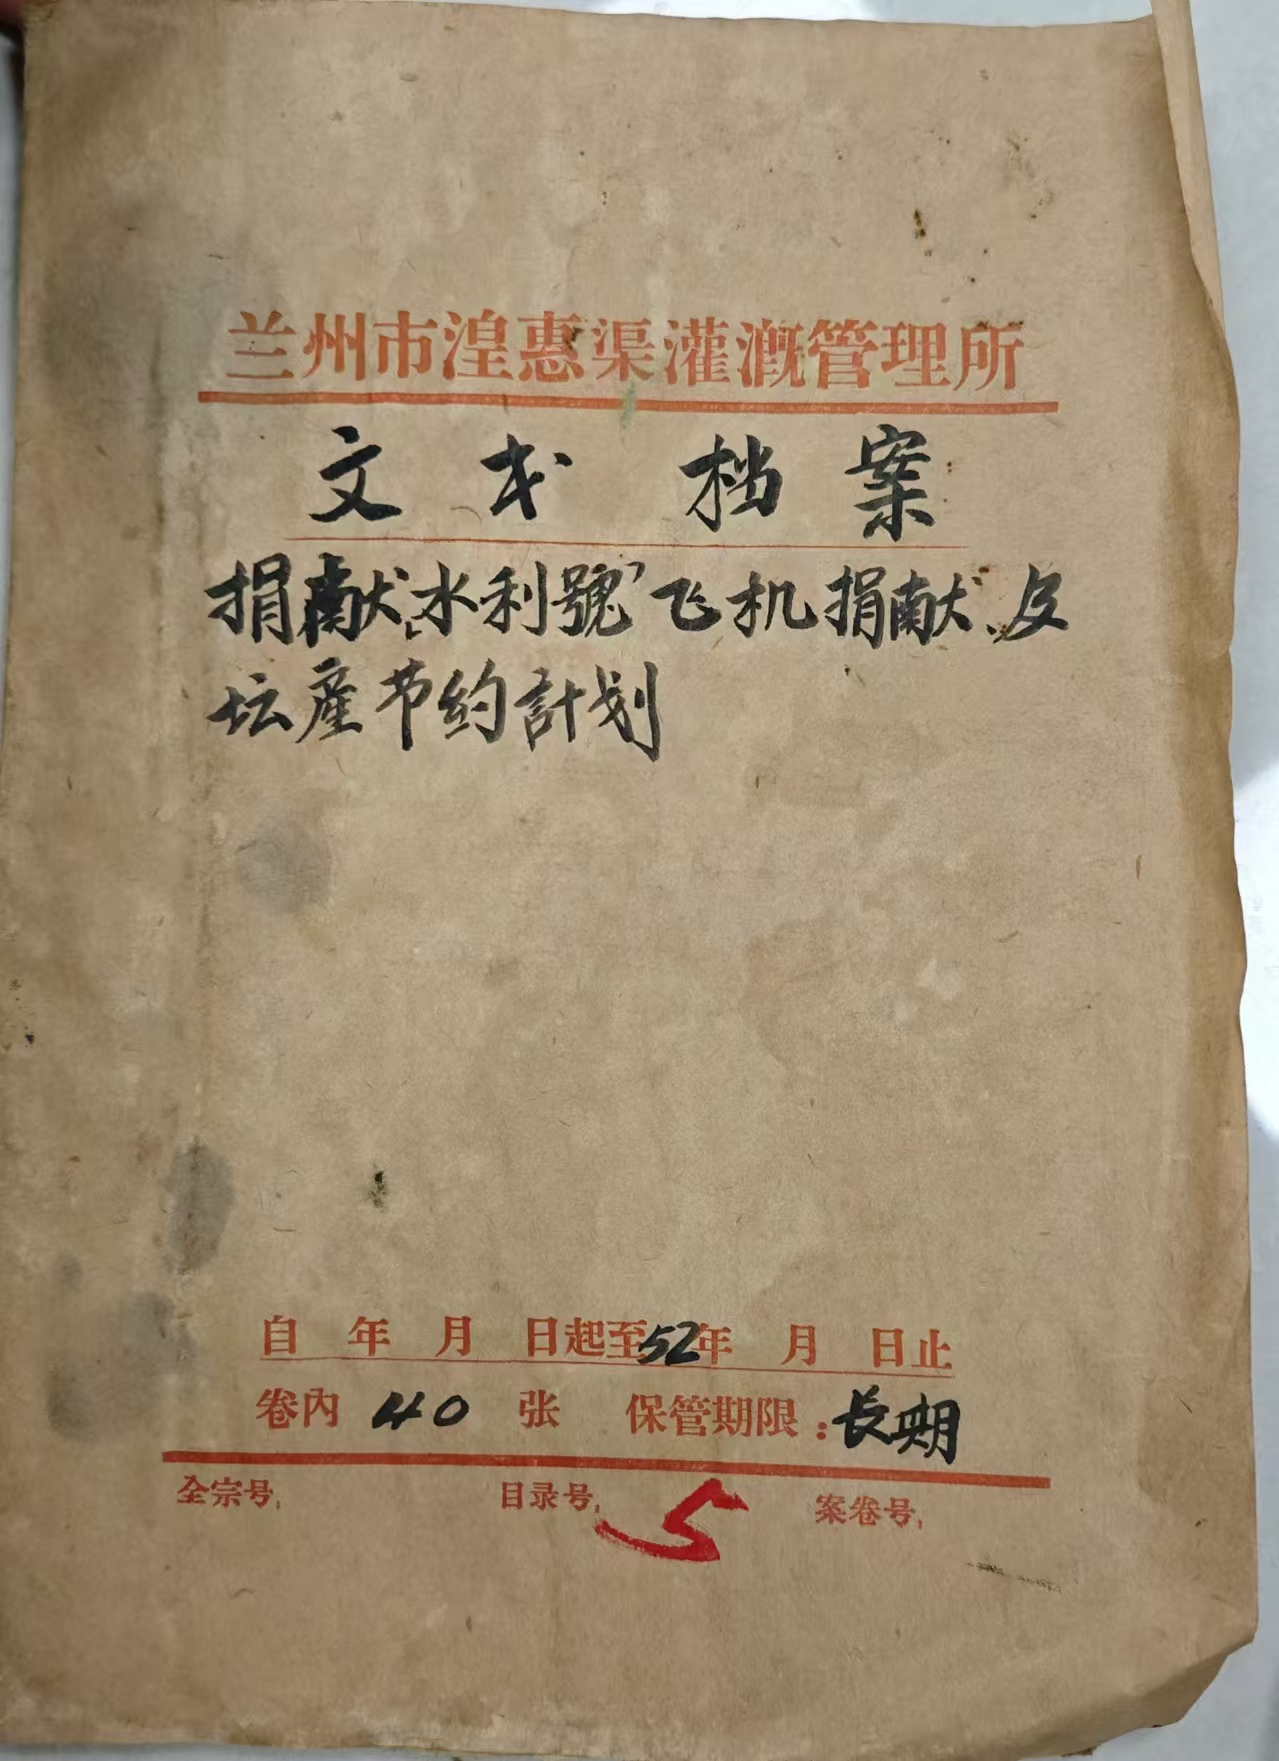 兰州市湟惠渠灌溉管理所
文书档案
捐献“水利號”飞机捐献及
坛産节约計划
自 年 月 日起至52年 月 日止
卷内 40 张 保管期限：長期
全宗号： 目录号：5 案卷号：